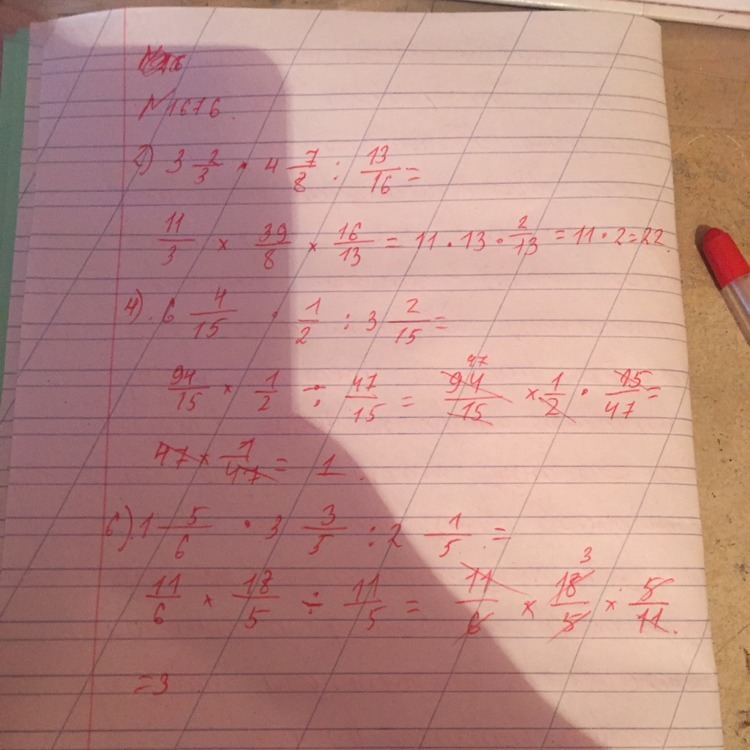 №1616.
2) 3 2/3 · 4 7/8 : 13/16 =
11/3 × 39/8 × 16/13 = 11 · 13 · 2/13 = 11 · 2 = 22
4). 6 4/15 · 1/2 : 3 2/15 =
94/15 × 1/2 ÷ 47/15 = 94/15 47 × 1/2 · 15/47 =
47 × 1/47 = 1.
6). 1 5/6 · 3 3/5 : 2 1/5 =
11/6 × 18/5 ÷ 11/5 = 11/6 × 18/5 3 × 5/11.
= 3